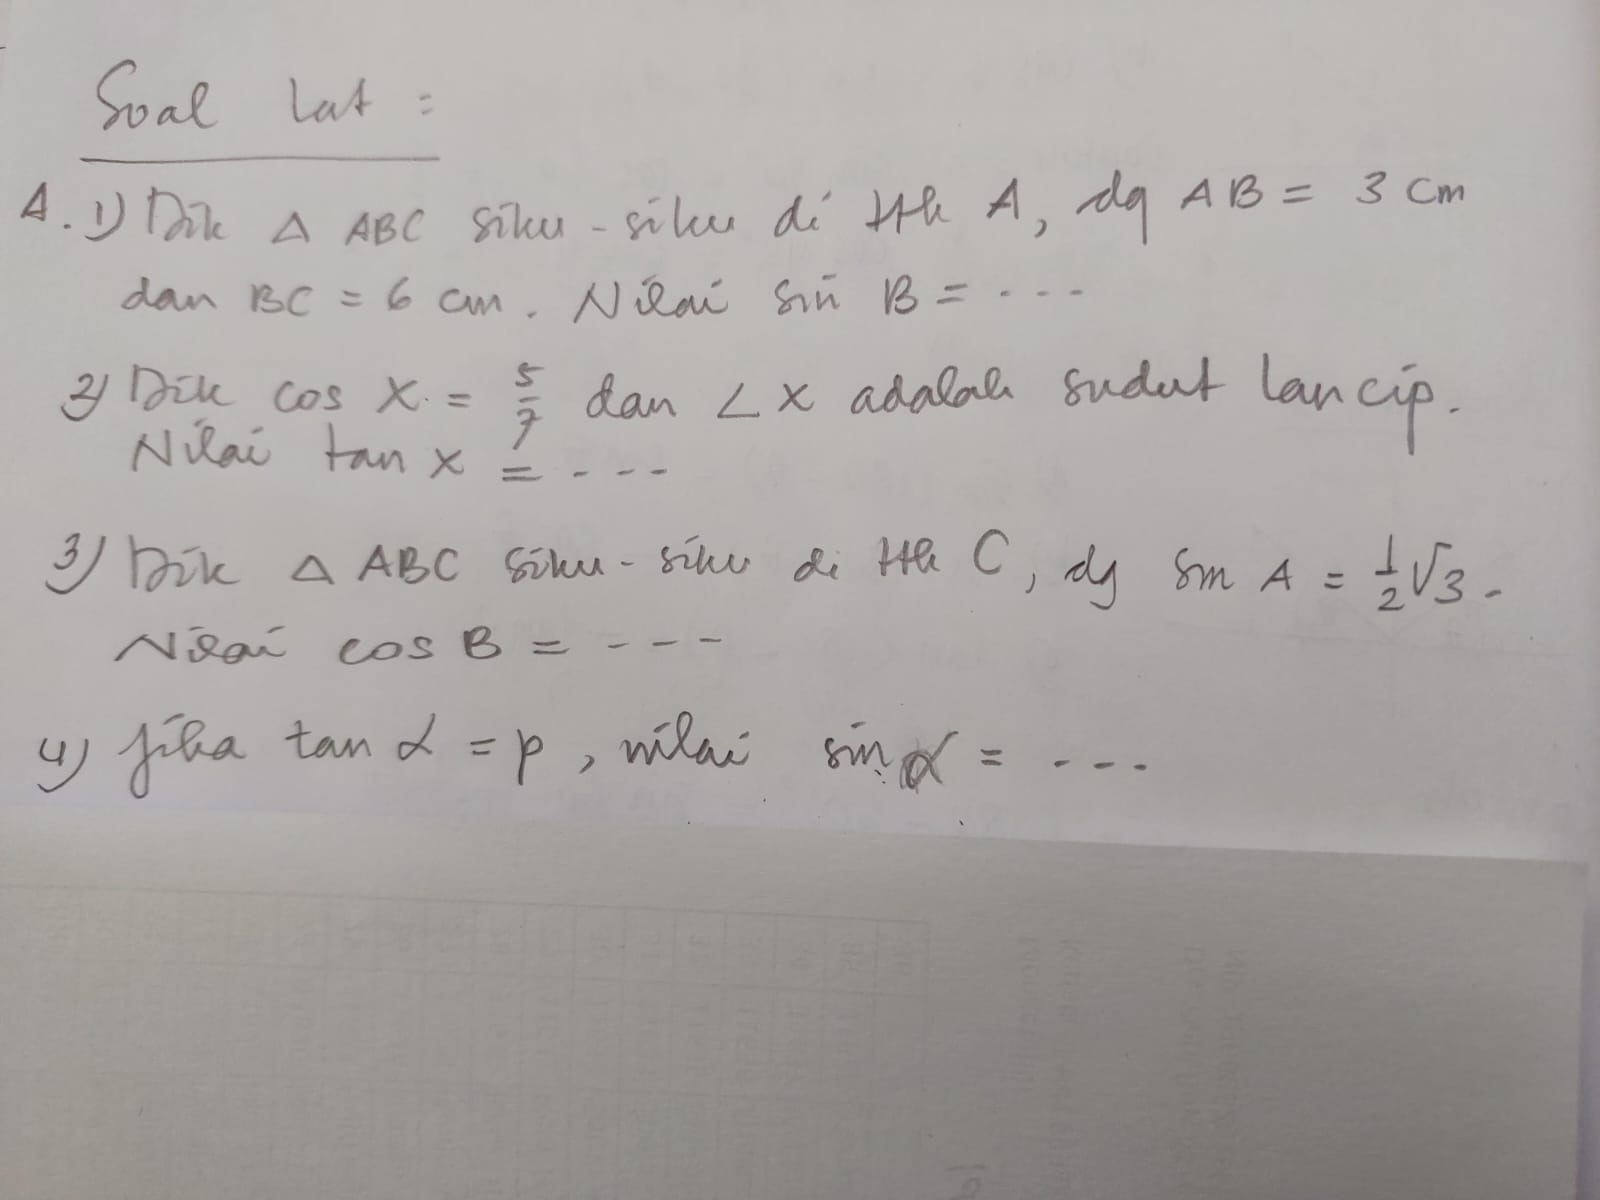 Soal Lat :
A. 1) Dik △ ABC siku-siku di ttk A, dg AB = 3 cm
dan BC = 6 cm. Nilai sin B = ...
2) Dik cos x = 5/7 dan ∠x adalah sudut lancip.
Nilai tan x = ...
3) Dik △ ABC siku-siku di ttk C, dg sin A = 1/2 √3.
Nilai cos B = ---
4) Jika tan α = p, nilai sin α = ---